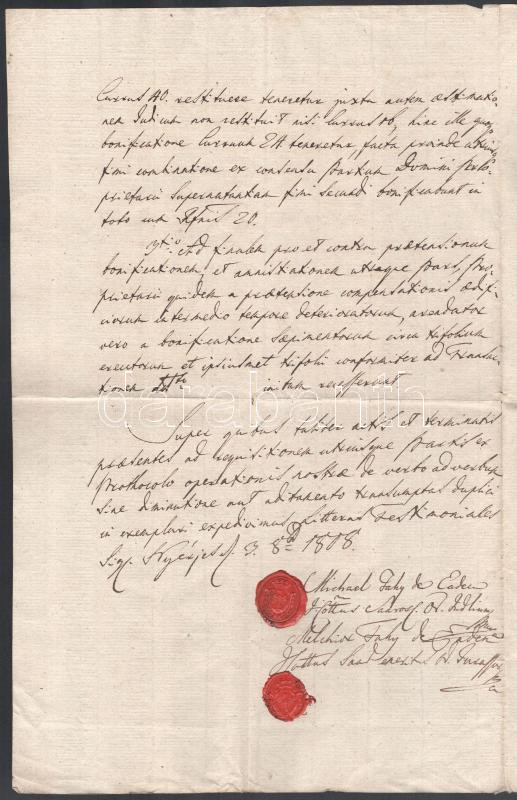 Currus 40. restituere teneretur juxta autem æstimatio-
nem Judicum non restituit nisi Currus 16, hinc ille
bonificatione Curruum 24 teneretur, facta proinde
fini combinatione ex consensu partium Domini Pro-
prietarii Supernatantium fini secundi bonificabunt in
toto cum Rfnis 20.
Ad finalem pro et contra prætensionum
bonificationem, et amnistiationem utraque Pars, Pro-
prietarii quidem a prætensione compensationis ædifi-
ciorum intermedio tempore deterioratorum, arendator
vero a bonificatione sæpimentorum circa trifolium
erectorum et ipsiusmet trifolii conformiter ad Transac-
tionem initam recesserunt
Super quibus taliter actis et terminatis
præsentes ad requisitionem utriusque Partis ex
Prothocolo operationis nostræ de verbo ad verbum
sine diminutione aut additamento transumptas duplici
in exemplari expedivimus Litteras Testimoniales
Sig. 3. 8b 1808.
Michael Fahy de Eaden
Cottus Sáros Or. Judlium
Melchior Fahy de Gaden
Cottus
darabanth